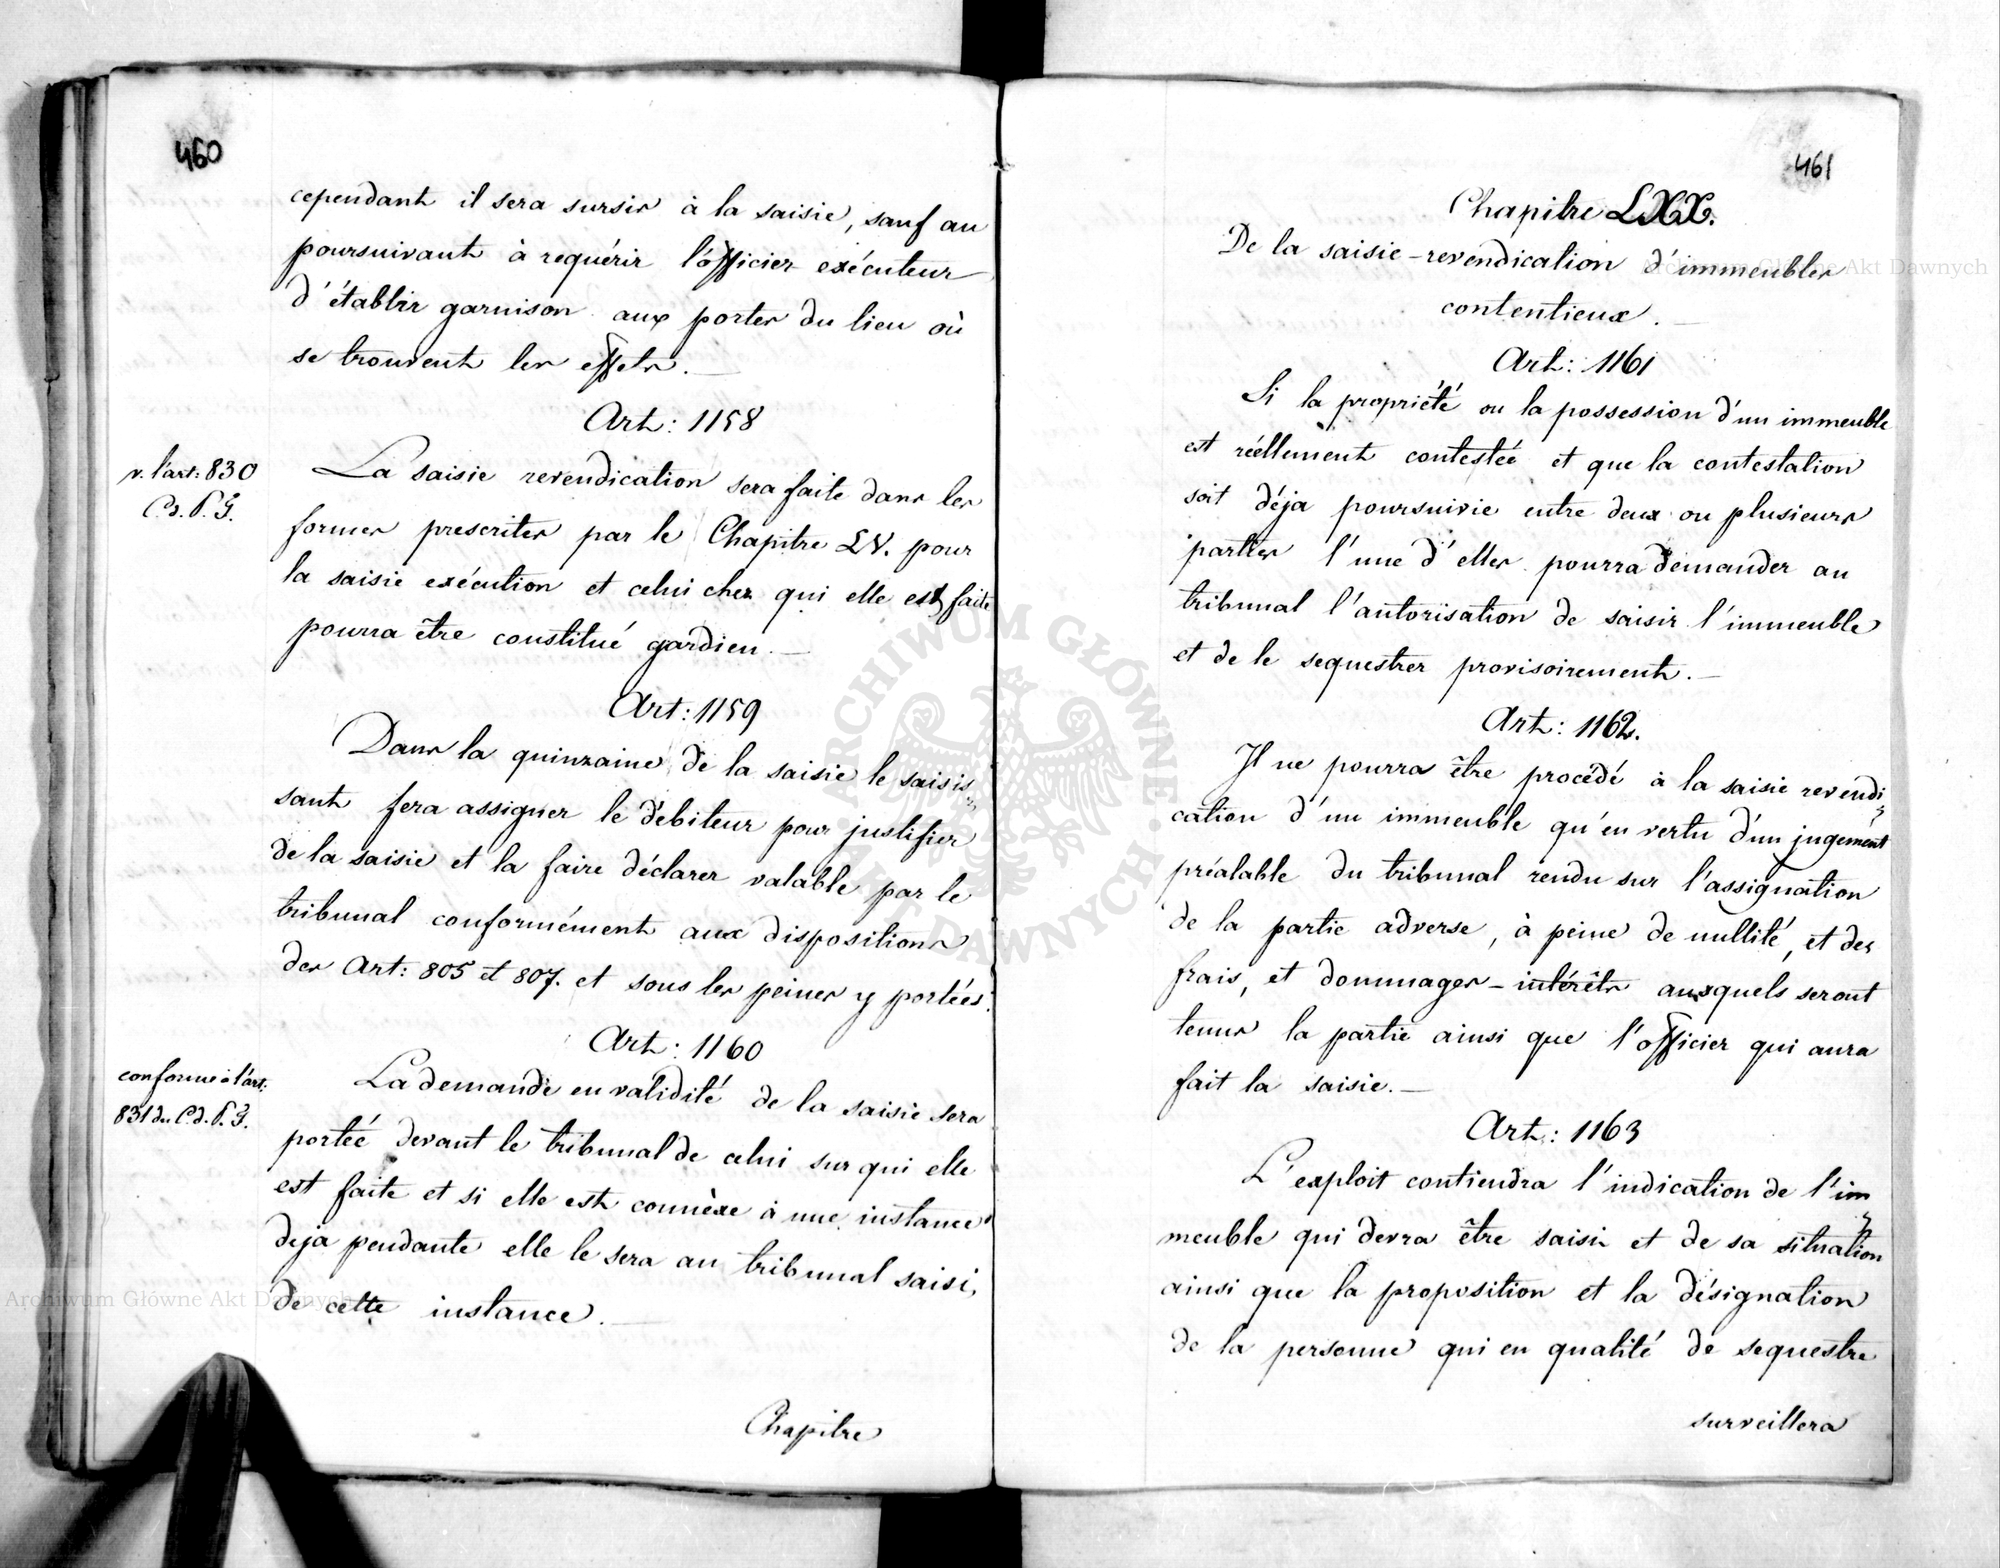 460
cependant il sera sursis à la saisie, sauf au
poursuivant à requérir l'officier exécuteur
d'établir garnison aux portes du lieu où
se trouvent les effets.
Art: 1158
v. l'art: 830
C. d. P. F.
La saisie revendication sera faite dans les
formes prescrites par le Chapitre LV. pour
la saisie exécution et celui chez qui elle est faite
pourra être constitué gardien.
Art: 1159
Dans la quinzaine de la saisie le saisis=
sant fera assigner le débiteur pour justifier
de la saisie et la faire déclarer valable par le
tribunal conformément aux dispositions
des Art: 805 et 807. et sous les peines y portées.
Art: 1160
conforme à l'art.
831 du C. d. P. F.
La demande en validité de la saisie sera
portée devant le tribunal de celui sur qui elle
est faite et si elle est connèxe à une instance
deja pendante elle le sera au tribunal saisi,
de cette instance.
Chapitre
461
Chapitre LXX.
De la saisie-revendication d'immeubles
contentieux.
Art: 1161
Si la propriété ou la possession d'un immeuble
est réellement contestée et que la contestation
soit déja poursuivie entre deux ou plusieurs
parties l'une d'elles pourra demander au
tribunal l'autorisation de saisir l'immeuble
et de le sequestrer provisoirement.
Art: 1162.
Il ne pourra être procédé à la saisie revendi=
cation d'un immeuble qu'en vertu d'un jugement
préalable du tribunal rendu sur l'assignation
de la partie adverse, à peine de nullité, et des
frais, et dommages-intérêts auxquels seront
tenus la partie ainsi que l'officier qui aura
fait la saisie.
Art: 1163
L'exploit contiendra l'indication de l'im=
meuble qui devra être saisi et de sa situation
ainsi que la proposition et la désignation
de la personne qui en qualité de sequestre
surveillera
ARCHIWUM GŁÓWNE AKT DAWNYCH
Archiwum Główne Akt Dawnych
Archiwum Główne Akt Dawnych